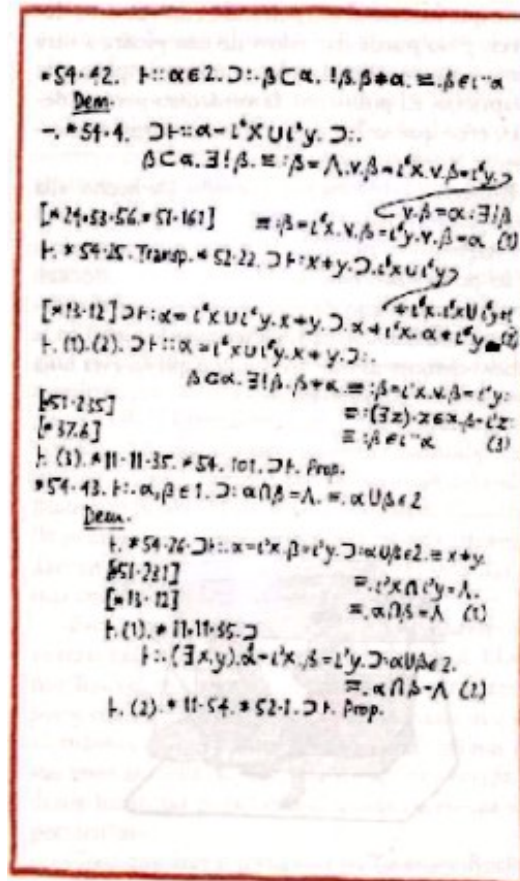 *54·42. ⊢:: α ε 2. ⊃:. β ⊂ α. !β. β ≠ α. ≡. β ε ι"α
Dem.
⊢. *54·4. ⊃⊢:: α = ι‘x ∪ ι‘y. ⊃:.
β ⊂ α. ∃!β. ≡ : β = Λ. v. β = ι‘x. v. β = ι‘y.
v. β = α : ∃!β
[*24·53·56. *51·161] ≡ : β = ι‘x. v. β = ι‘y. v. β = α (1)
⊢. *54·25. Transp. *52·22. ⊃⊢: x ≠ y. ⊃. ι‘x ∪ ι‘y
≠ ι‘x. ι‘x ∪ ι‘y ≠ ι‘y
[*13·12] ⊃⊢: α = ι‘x ∪ ι‘y. x ≠ y. ⊃. α ≠ ι‘x. α ≠ ι‘y (2)
⊢. (1). (2). ⊃⊢:: α = ι‘x ∪ ι‘y. x ≠ y. ⊃:.
β ⊂ α. ∃!β. β ≠ α. ≡ : β = ι‘x. v. β = ι‘y:
[*51·235] ≡ : (∃z). z ε α. β = ι‘z:
[*37·6] ≡ : β ε ι"α (3)
⊢. (3). *11·11·35. *54·101. ⊃⊢. Prop.
*54·43. ⊢:. α, β ε 1. ⊃: α ∩ β = Λ. ≡. α ∪ β ε 2
Dem.
⊢. *54·26. ⊃⊢:. α = ι‘x. β = ι‘y. ⊃: α ∪ β ε 2. ≡. x ≠ y.
[*51·231] ≡. ι‘x ∩ ι‘y = Λ.
[*13·12] ≡. α ∩ β = Λ (1)
⊢. (1). *11·11·35. ⊃
⊢:. (∃x, y). α = ι‘x. β = ι‘y. ⊃: α ∪ β ε 2.
≡. α ∩ β = Λ (2)
⊢. (2). *11·54. *52·1. ⊃⊢. Prop.